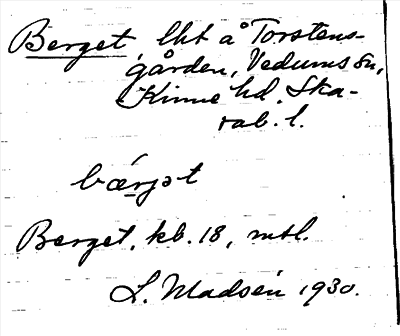 Berget, lht å Torstens-
gården, Vedums sn,
Kinne hd. Ska-
rab. l.
bærjət
Berget, kb. 18, mtl.
L. Madsén 1930.